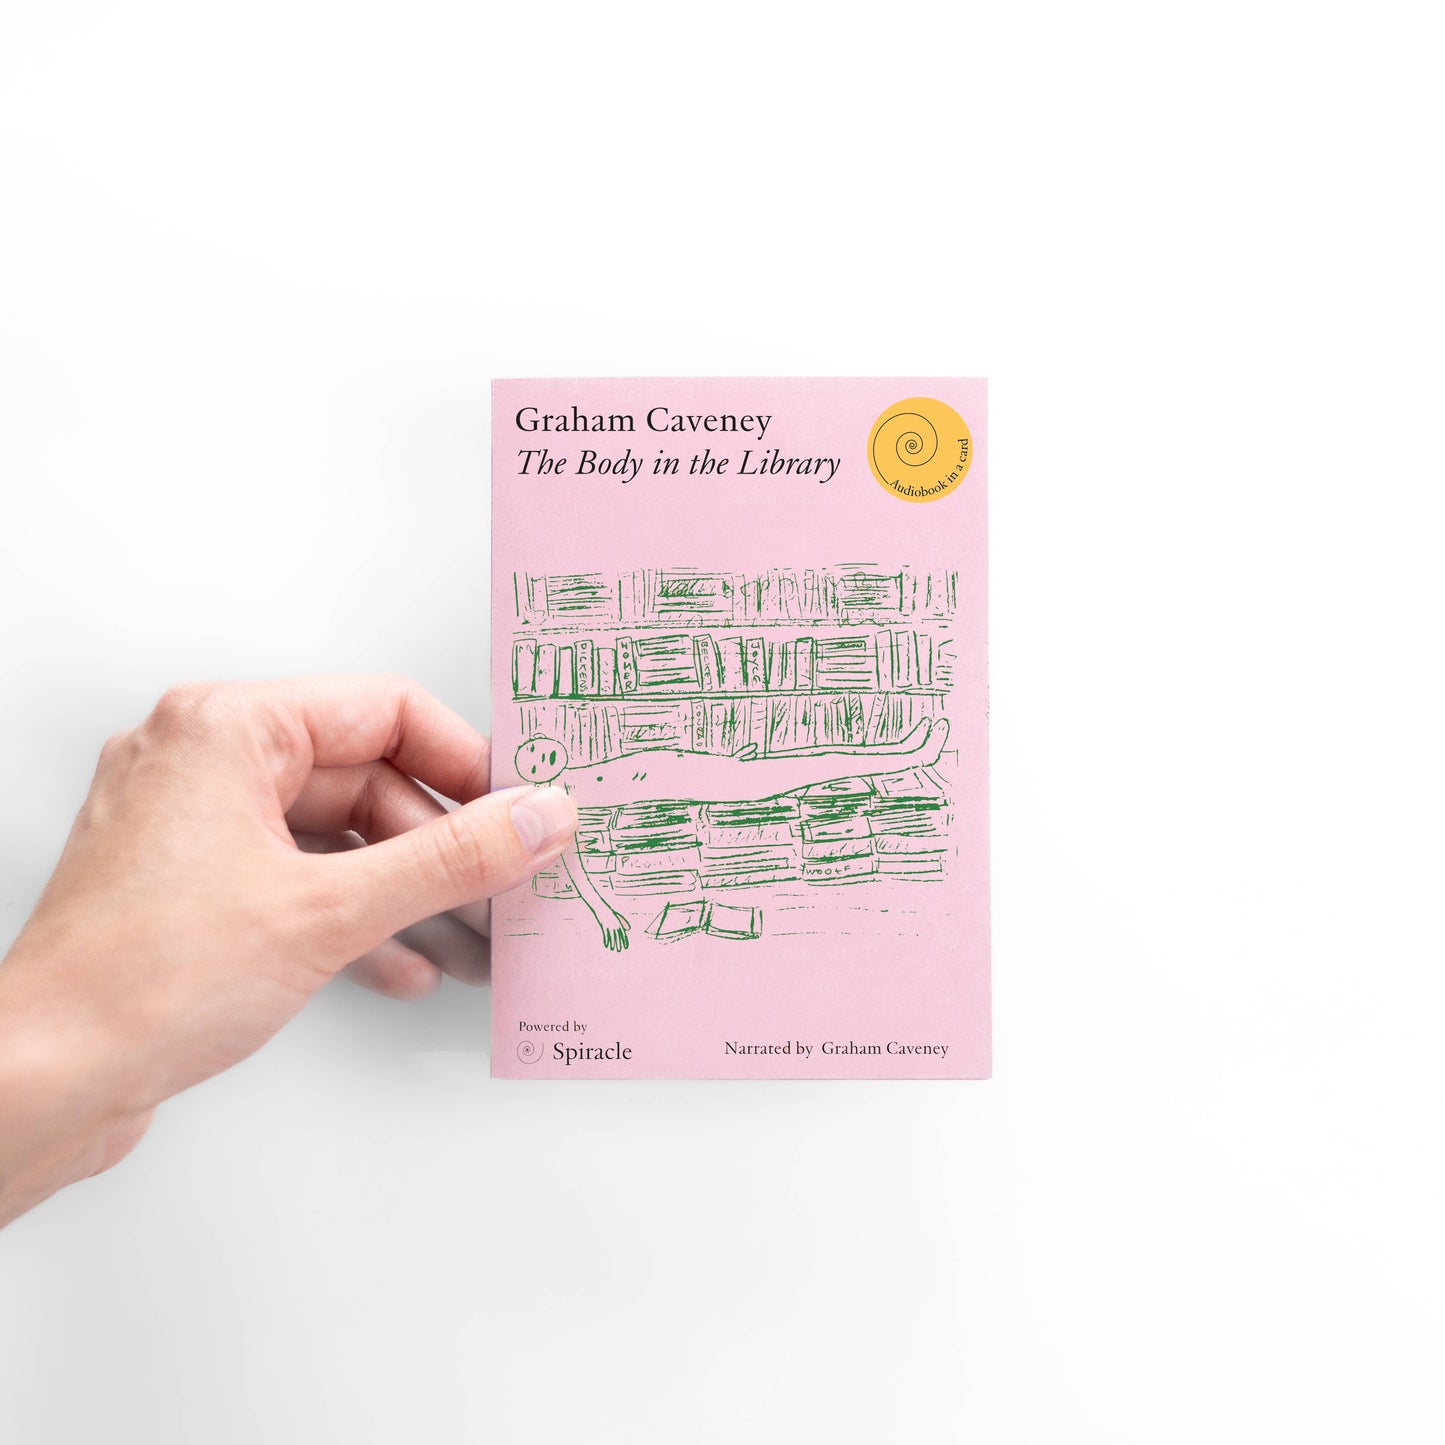 Graham Caveney
The Body in the Library
Audiobook in a card
DICKENS
HOMER
BECKET
JOYCE
WOOLF
Powered by
Spiracle
Narrated by Graham Caveney